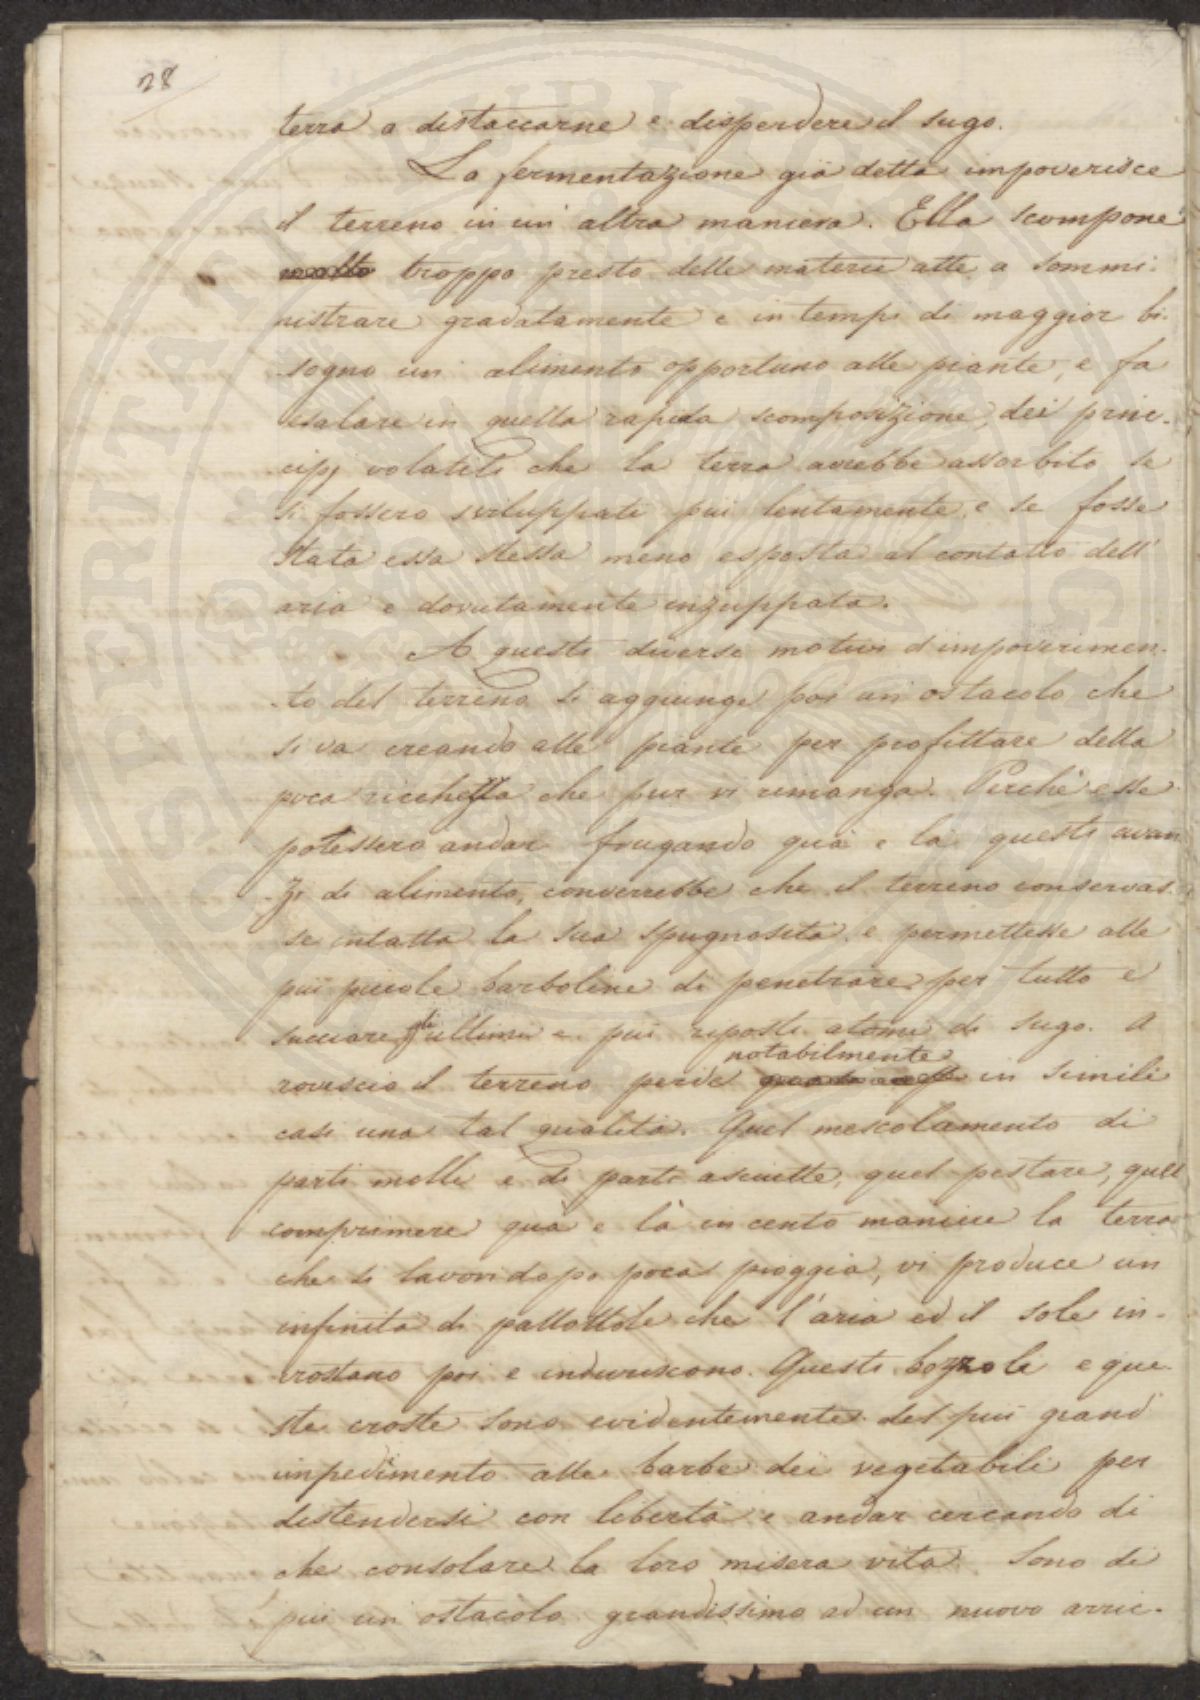 28
terra a distaccarne e disperdere il sugo.
La fermentazione già detta impoverisce
il terreno in un' altra maniera. Ella scompone
molto troppo presto delle materie atte a sommi-
nistrare gradatamente e in tempi di maggior bi-
sogno un alimento opportuno alle piante, e fa
esalare in quella rapida scomposizione, dei prin-
cipj volatili che la terra avrebbe assorbito se
si fossero sviluppati più lentamente, e se fosse
stata essa stessa meno esposta al contatto dell'
aria e dovutamente inzuppata.
A questi diversi motivi d'impoverimen-
to del terreno si aggiunge poi un ostacolo che
si va creando alle piante per profittare della
poca ricchezza che pur vi rimanga. Perchè esse
potessero andar frugando quà e là questi avan
zi di alimento, converrebbe che il terreno conservas-
se intatta la sua spugnosità, e permettesse alle
più piccole barboline di penetrare per tutto e
succiare gli ultimi e più riposti atomi di sugo. A
notabilmente
rovescio il terreno perde in simili
casi una tal qualità. Quel mescolamento di
parti molli e di parti asciutte, quel pestare, quel
comprimere quà e là in cento maniere la terra
che si lavori dopo poca pioggia, vi produce un
infinità di pallottole che l'aria ed il sole in-
crostano poi e induriscono. Questi bozzoli e que-
ste croste sono evidentemente del più grand'
impedimento alle barbe dei vegetabili per
distendersi con libertà e andar cercando di
che consolare la loro misera vita. Sono di
più un ostacolo grandissimo ad un nuovo arric-
SPERITATI PUBLICAE